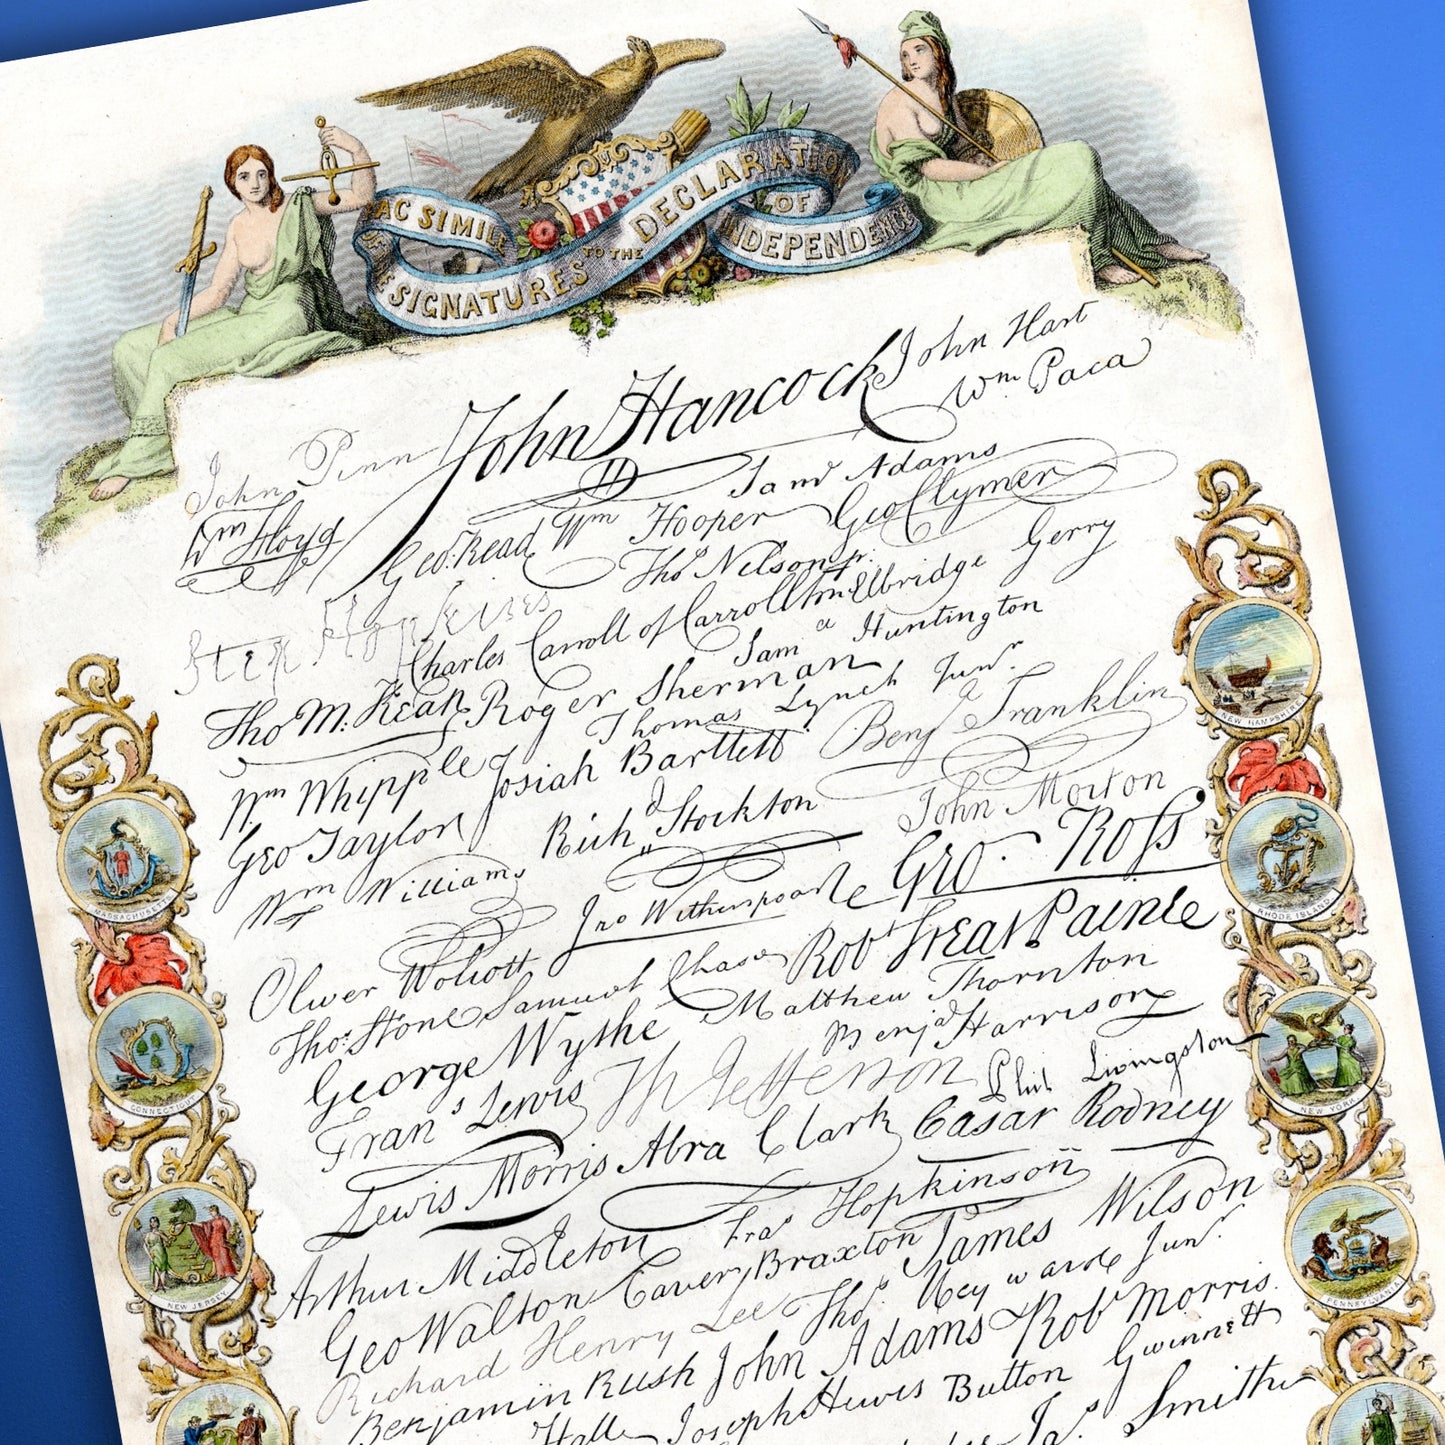 FAC SIMILE
OF THE
SIGNATURES
TO THE
DECLARATION
OF
INDEPENDENCE
John Hancock
John Hart
Wm Paca
John Penn
Wm Floyd
Saml Adams
Geo. Read
Wm Hooper
Geo Clymer
Thos Nelson jr.
Step Hopkins
Charles Carroll of Carrollton
Elbridge Gerry
Saml Huntington
Tho M. Kean
Roger Sherman
Thomas Lynch Junr.
Wm Whipple
Josiah Bartlett
Benja Franklin
Geo Taylor
Richd Stockton
John Morton
Wm Williams
Jno Witherspoon
Geo. Ross
Oliver Wolcott
Robt Treat Paine
Thos. Stone
Samuel Chase
Matthew Thornton
George Wythe
Benja Harrison
Frans Lewis
Th Jefferson
Phil Livingston
Lewis Morris
Abra Clark
Casar Rodney
Arthur Middleton
Fras Hopkinson
Geo Walton
Carter Braxton
James Wilson
Richard Henry Lee
Thos Heyward Junr.
Benjamin Rush
John Adams
Robt Morris
Hall
Joseph Hewes
Button Gwinnett
Jas. Smith
NEW HAMPSHIRE
MASSACHUSETTS
RHODE ISLAND
CONNECTICUT
NEW YORK
NEW JERSEY
PENNSYLVANIA